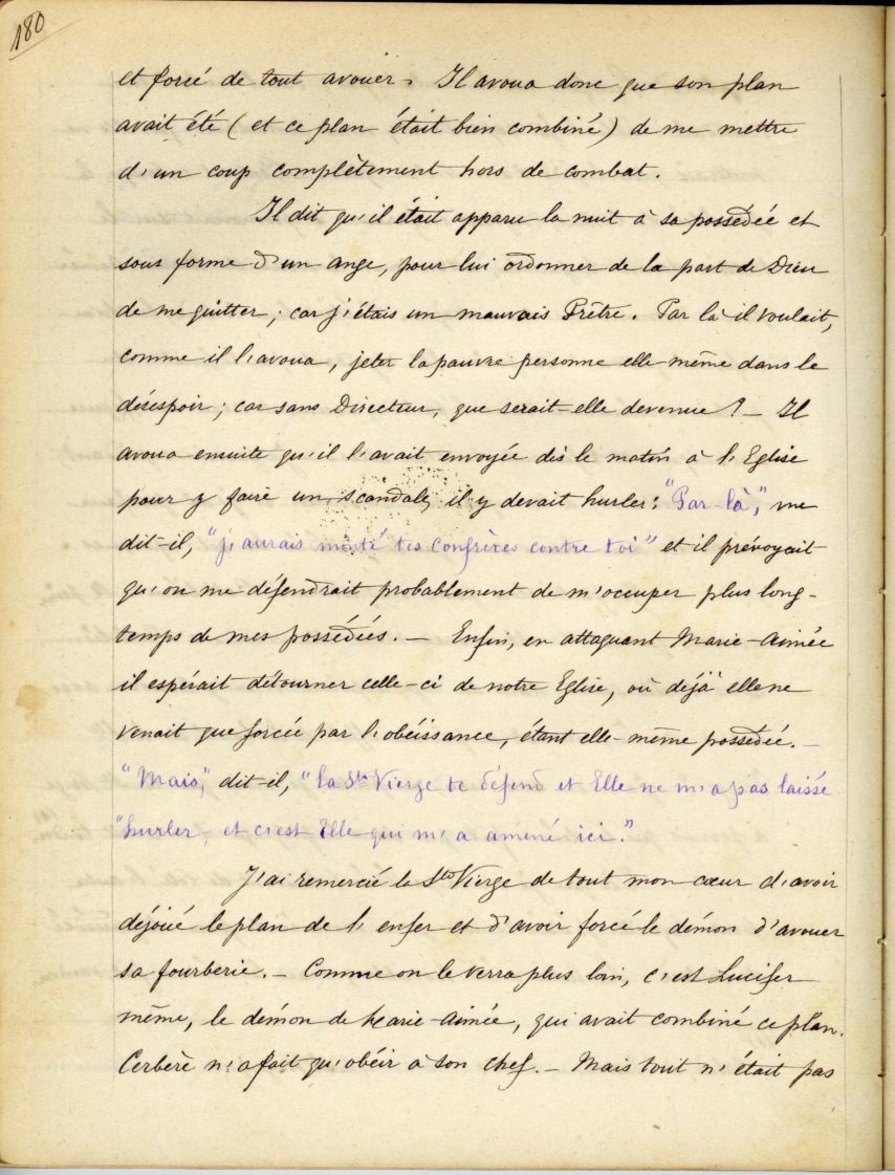 180
et forcé de tout avouer. Il avoua donc que son plan
avait été (et ce plan était bien combiné) de me mettre
d'un coup complètement hors de combat.
Il dit qu'il était apparu la nuit à sa possédée et
sous forme d'un ange, pour lui ordonner de la part de Dieu
de me quitter; car j'étais un mauvais Prêtre. Par là il voulait,
comme il l'avoua, jeter la pauvre personne elle-même dans le
désespoir; car sans Directeur, que serait-elle devenue? — Il
avoua ensuite qu'il l'avait envoyée dès le matin à l'Eglise
pour y faire un scandale, il y devait hurler: "Par là," me
dit-il, "j'aurais monté tes confrères contre toi" et il prévoyait
qu'on me défendrait probablement de m'occuper plus long-
temps de mes possédées. — Enfin, en attaquant Marie-Aimée
il espérait détourner celle-ci de notre Eglise, où déjà elle ne
venait que forcée par l'obéissance, étant elle-même possédée. —
"Mais," dit-il, "la Ste Vierge te défend et Elle ne m'a pas laissé
"hurler, et c'est Elle qui m'a amené ici."
J'ai remercié la Ste Vierge de tout mon cœur d'avoir
déjoué le plan de l'enfer et d'avoir forcé le démon d'avouer
sa fourberie. — Comme on le verra plus loin, c'est Lucifer
même, le démon de Marie-Aimée, qui avait combiné ce plan.
Cerbère n'a fait qu'obéir à son chef. — Mais tout n'était pas